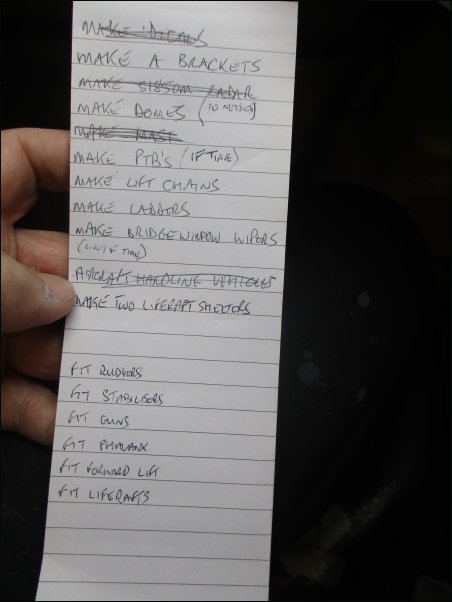 MAKE DECALS
MAKE A BRACKETS
MAKE RADAR
MAKE DOMES (10 NEEDED)
MAKE MAST
MAKE PTB'S (IF TIME)
MAKE LIFT CHAINS
MAKE LADDERS
MAKE BRIDGE WINDOW WIPERS
(ONLY IF TIME)
AIRCRAFT HANDLING VEHICLES
MAKE TWO LIFERAFT SHELTERS
FIT RUDDERS
FIT STABILISERS
FIT GUNS
FIT PHALANX
FIT FORWARD LIFT
FIT LIFERAFTS